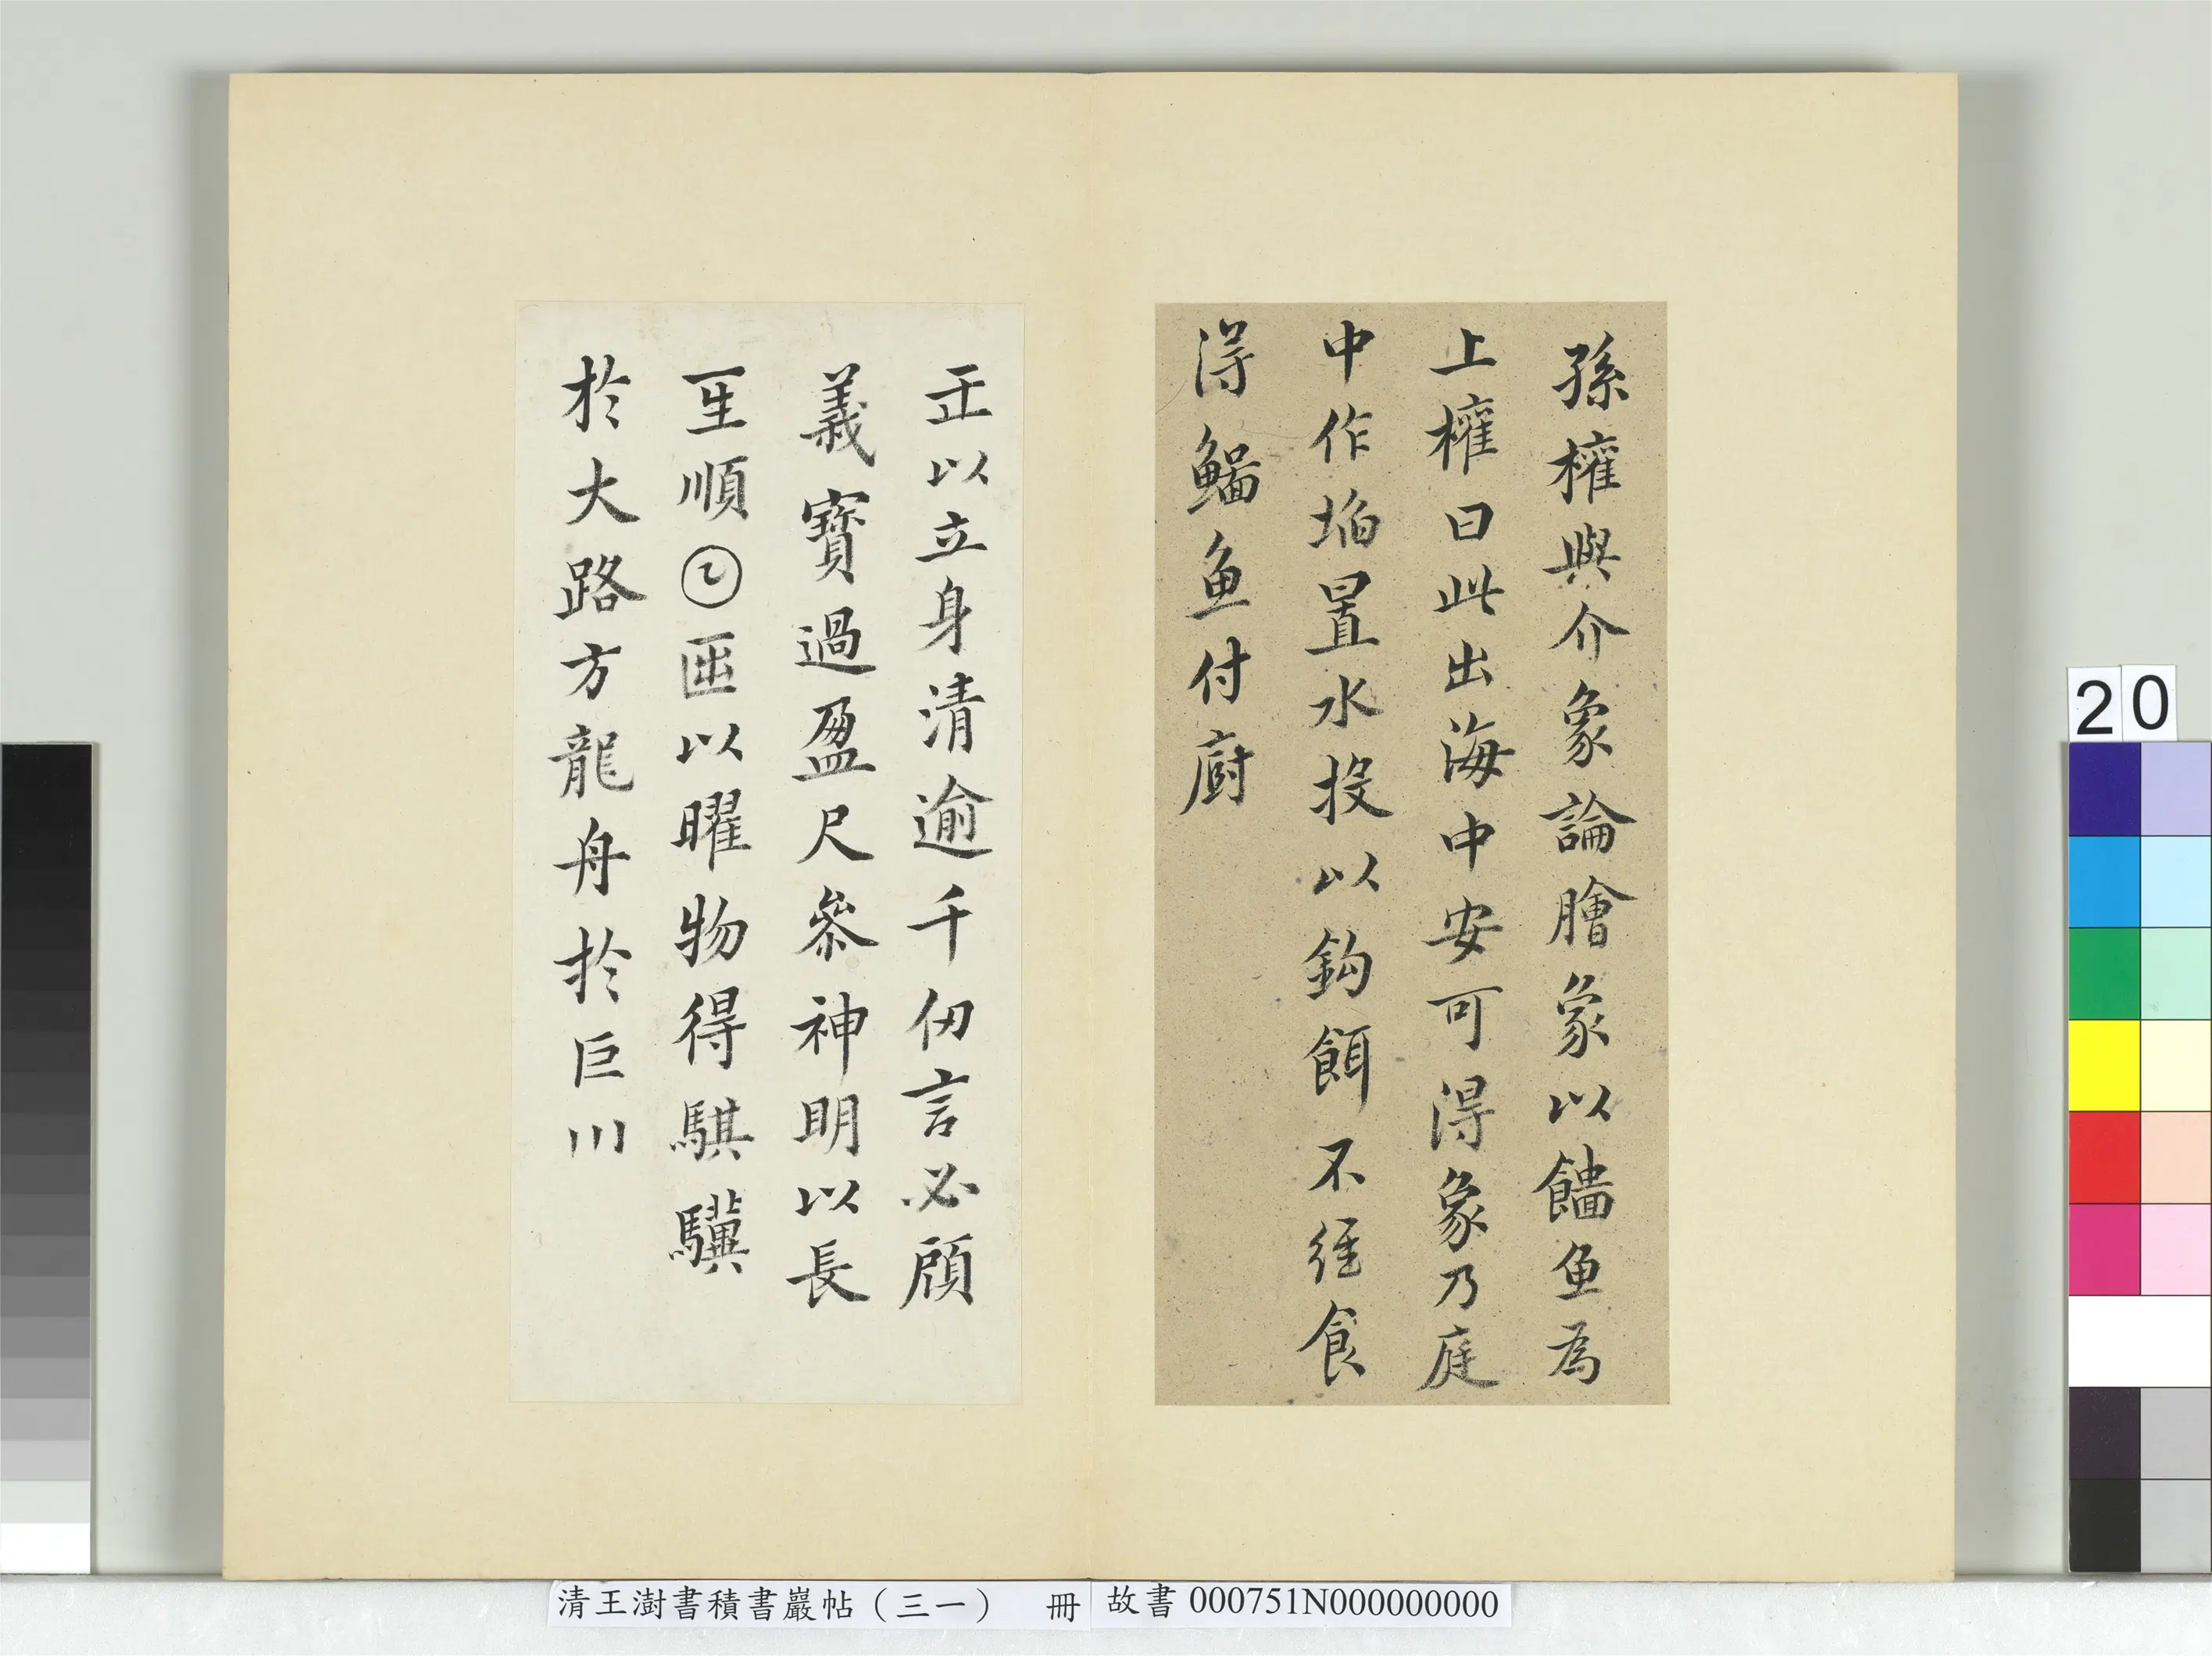 孫權與介象論膾象以魚為
上權曰此出海中安可得象乃庭
中作埳置水投以鈎餌不徑食
得鯔魚付廚
正以立身清逾千仞言必顧
義寶過盈尺參神明以長
𤯔順𡆠𠥱以曜物得騏驥
於大路方龍舟於巨川
20
清王澍書積書巖帖（三一） 冊 故書 000751N000000000